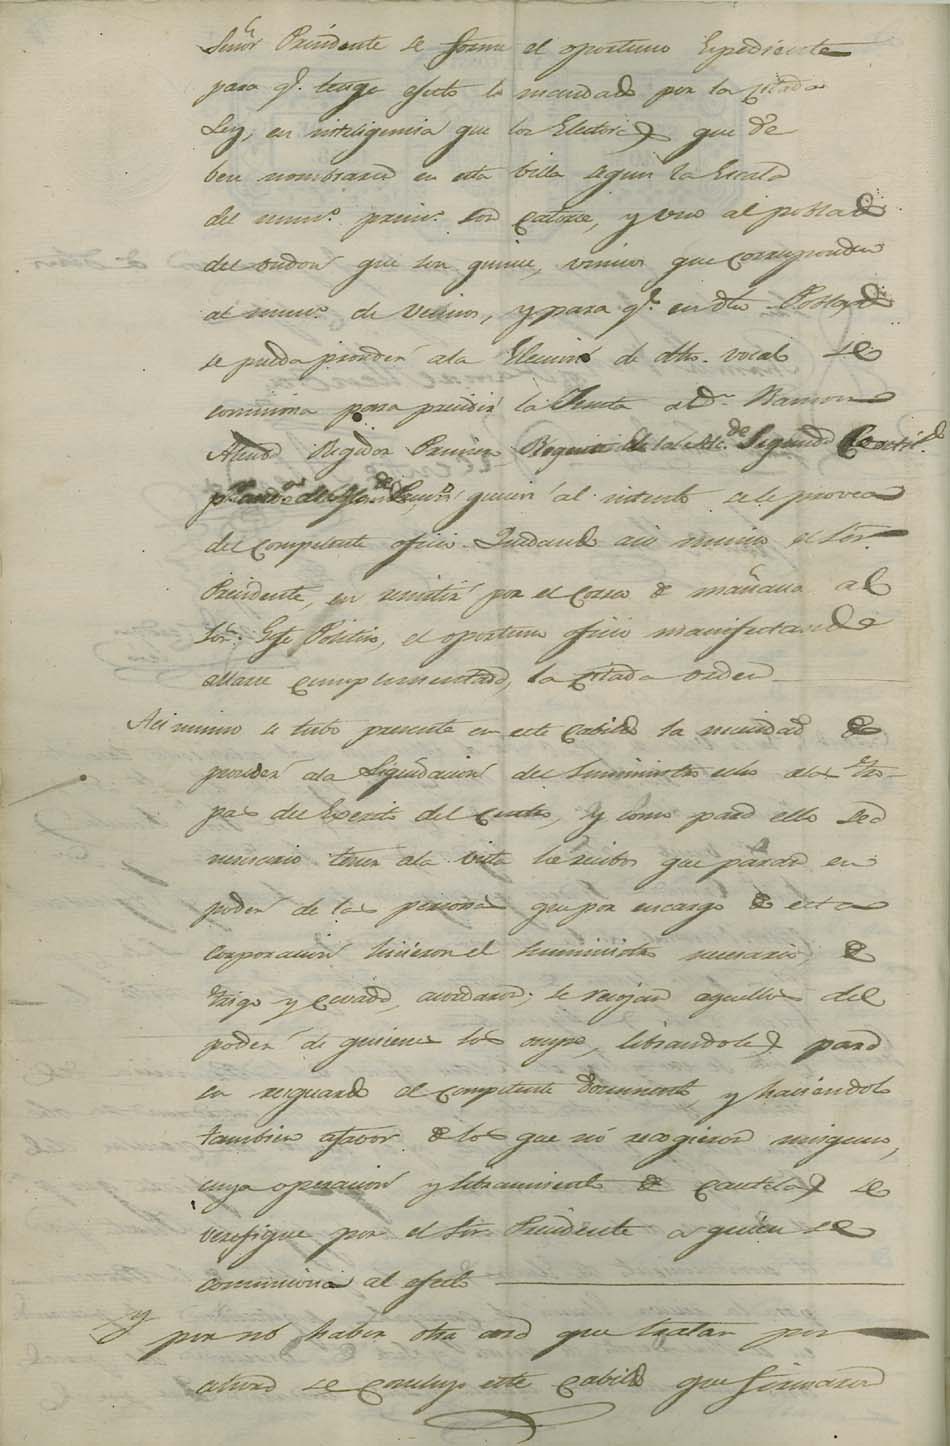 Señor Presidente se forme el oportuno Espediente
para q.e tenga efecto lo mandado por la citada
Ley, en inteligencia que los Electores que de
ben nombrarse en esta Villa segun la Escala
del num.o prim.o son catorce, y uno al poblado
del que son quince, unicos que corresponden
al num.o de vecinos, y para q.e en dho. Poblado
se pueda proceder ala Eleccion de dho. vocal se
comisiona para presidir la Junta al D.n Ramon
Regidor Primero Segundo
quien al intento se le provea
del competente oficio. Quedando asi mismo el Sor.
Presidente, en remitir por el correo de mañana al
Sor. Gefe Politico, el oportuno oficio manifestandole
allarse cumplimentada, la citada orden
Asi mismo se tubo presente en este Cabildo la necesidad de
proceder ala Liquidacion del suministro echo alas tro-
pas del Exercito del Centro, y como para ello sea
necesario tener ala vista los recibos que paran en
poder de las personas que por encargo de esta
corporacion hicieron el suministro necesario de
trigo y cevada, acordaron; se recojan aquellos del
poder de quienes los ocupe, librandoles para
su resguardo el competente documento, y haciendolo
tambien afavor de los que no recogieron ninguno,
cuya operacion y libramiento de cautelas se
verifique por el Sor. Presidente a quien se
comisiona al efecto
Y por no haber otra cosa que tratar por
ahora se concluyo este Cabildo que firmaron